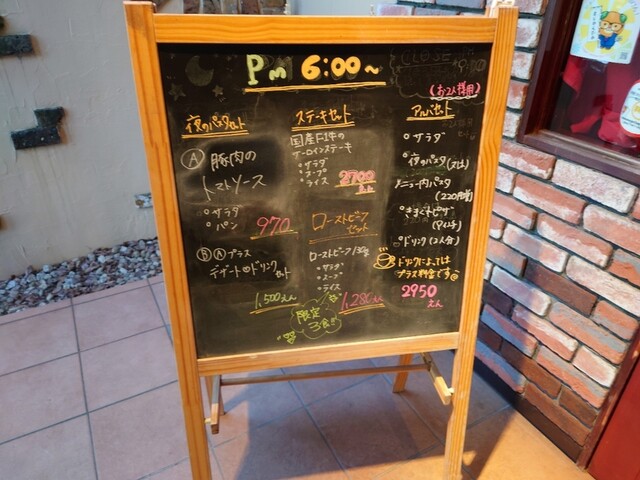 Pm 6:00~
夜のパスタセット
Ⓐ 豚肉の
トマトソース
サラダ
パン
970
ⒷⒶプラス
デザートorドリンク
セット
1,500えん
ステーキセット
国産F1牛の
サーロインステーキ
サラダ
スープ
ライス
2700
えん
ローストビーフ
セット
ローストビーフ130g
サラダ
スープ
ライス
1,280えん
限定
3食!!
CLOSE
(お2人様用)
アルバセット
サラダ
夜のパスタ(又は)
メニュー内パスタ
(220円増)
ドリンク(2人分)
ドリンクによっては
プラス料金です
2950
えん